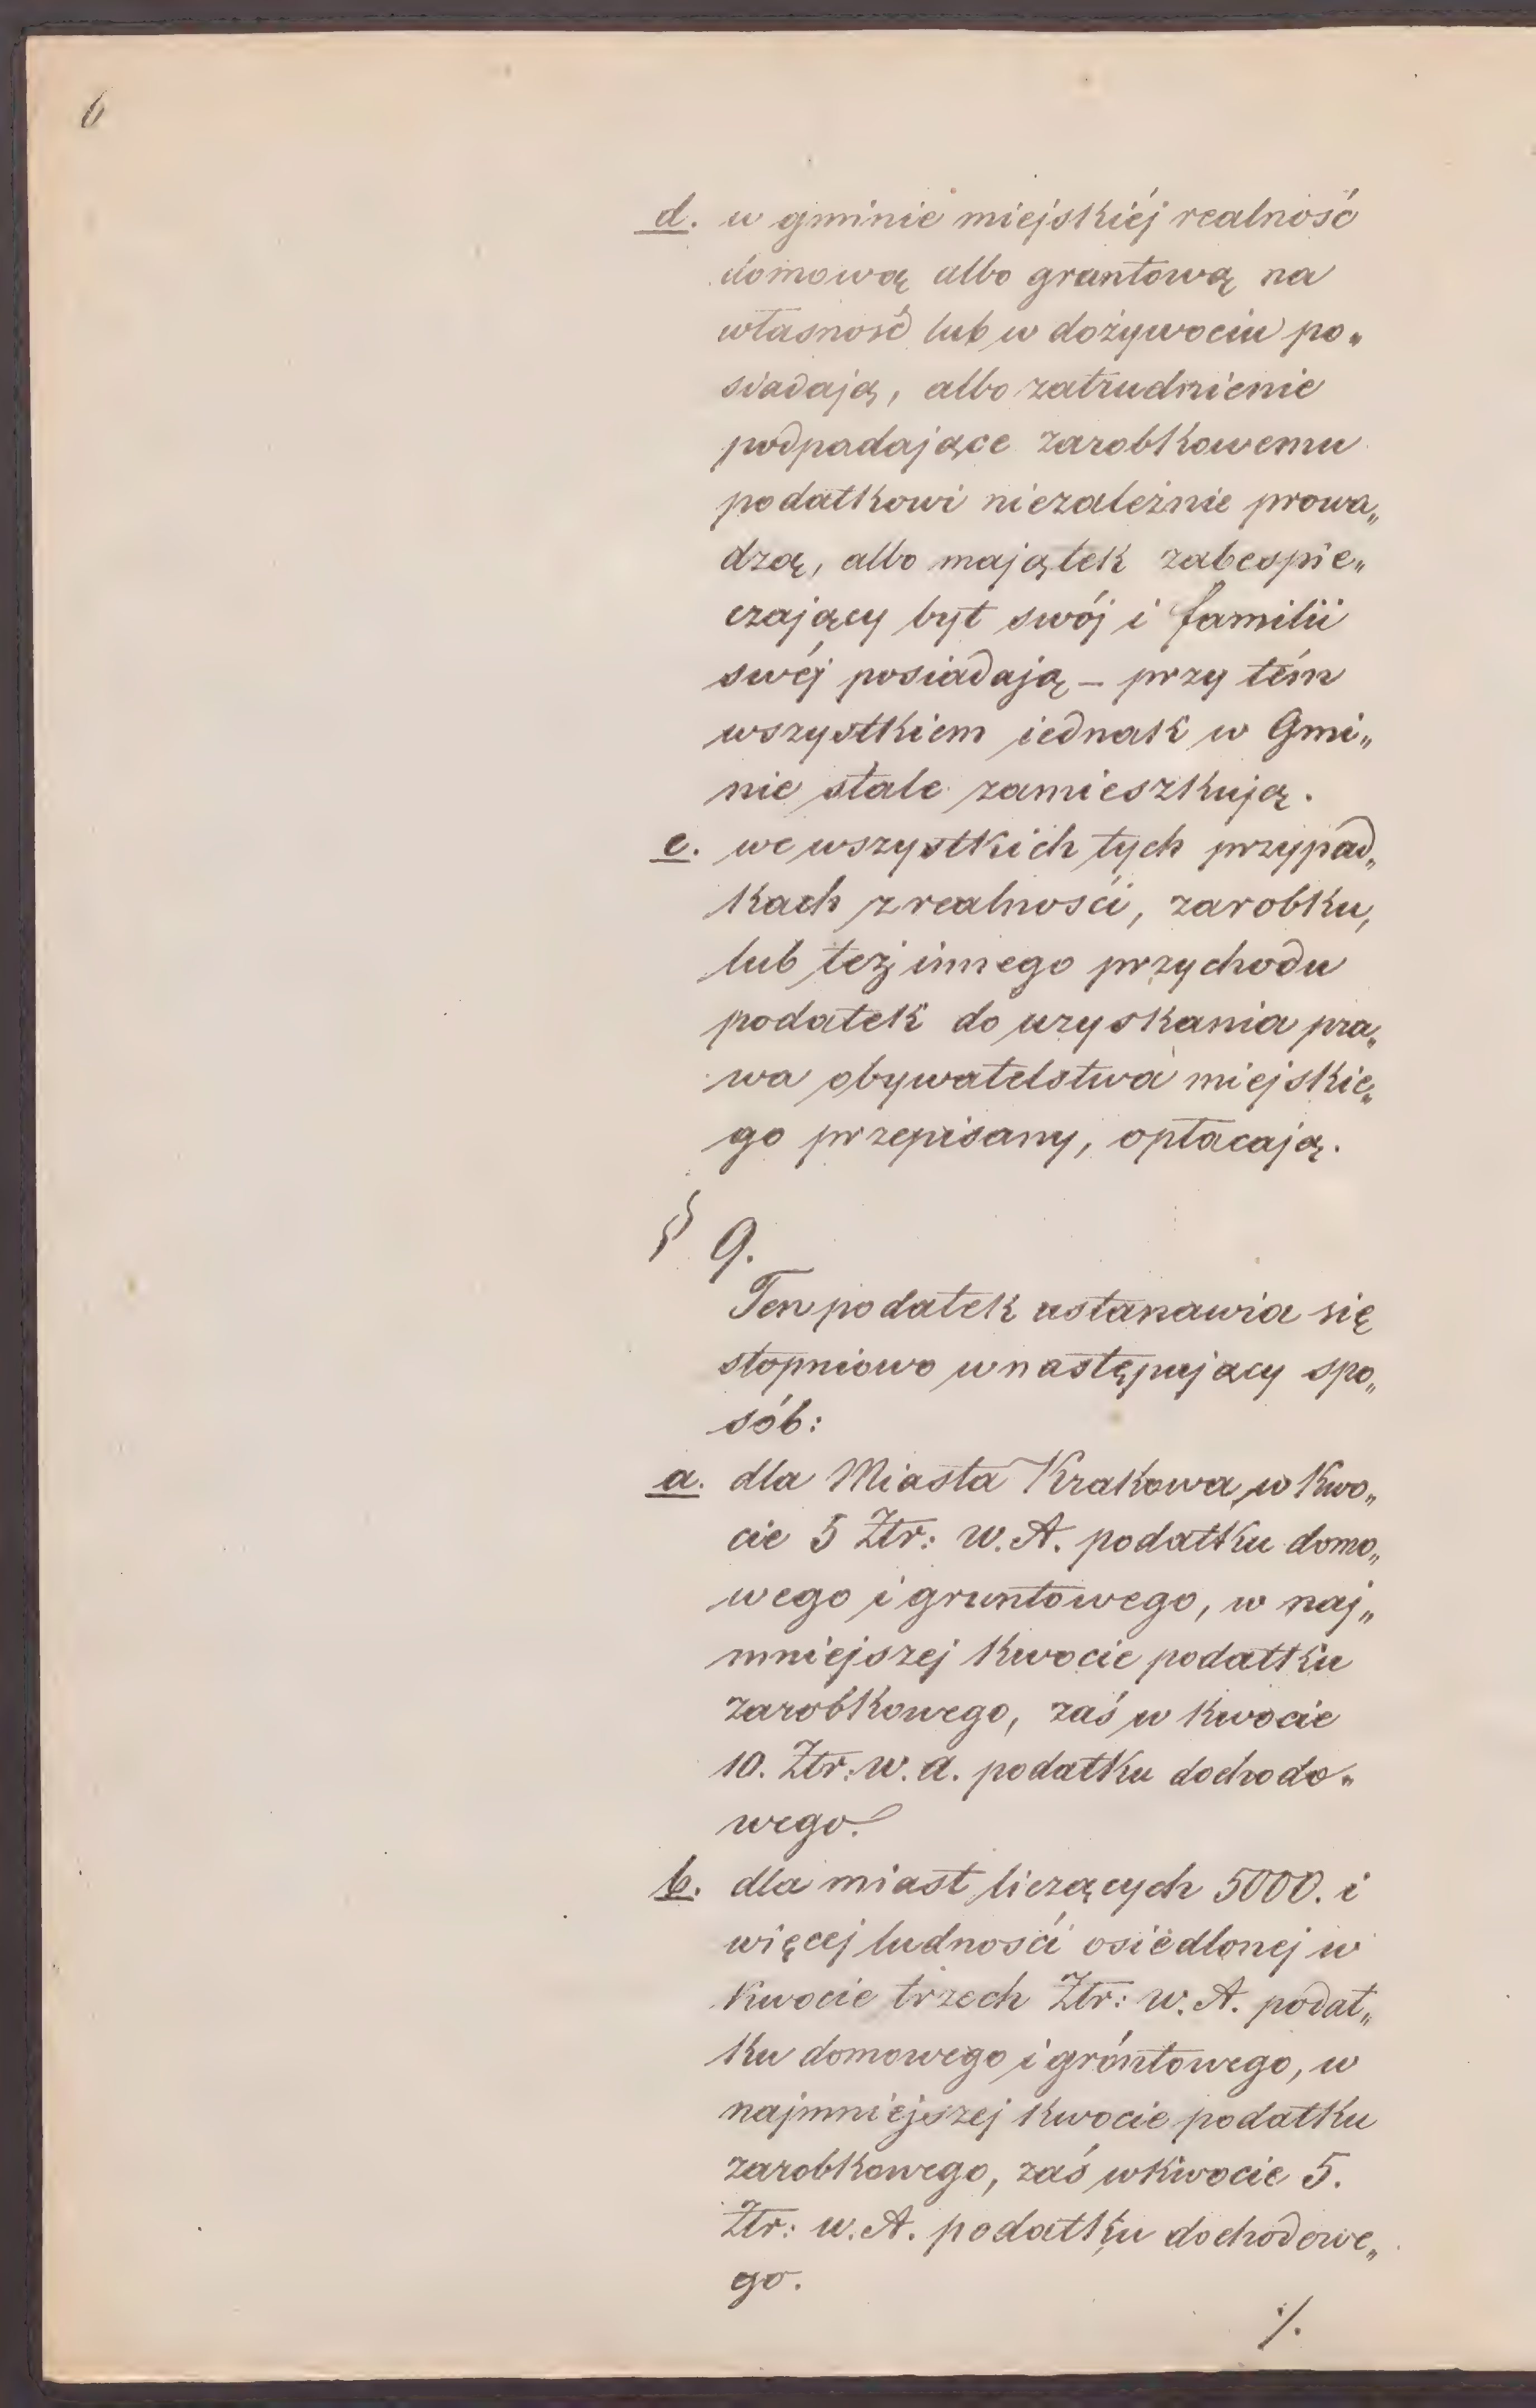 6
d. w gminie miejskiéj realność
domową albo gruntową na
własność lub w dożywociu po„
siadają, albo zatrudnienie
podpadające zarobkowemu
podatkowi niezależnie prowa„
dzą, albo majątek zabespie„
czający byt swój i familii
swéj posiadają – przy tém
wszystkiem iednak w Gmi„
nie stale zamieszkują.
e. we wszystkich tych przypad„
kach z realnośći, zarobku,
lub też innego przychodu
podatek do uzyskania pra„
wa obywatelstwa miejskie„
go przepisany, opłacają.
§ 9.
Ten podatek ustanawia się
stopniowo w następujący spo„
sób:
a. dla Miasta Krakowa w kwo„
cie 5 Złr: w. A. podatku domo„
wego i gruntowego, w naj„
mniejszej kwocie podatku
zarobkowego, zaś w kwocie
10. Złr: w. a. podatku dochodo„
wego.
b. dla miast liczących 5000. i
więcej ludnośći osiedlonej w
kwocie trzech Złr: w. A. podat„
ku domowego i gróntowego, w
najmniejszej kwocie podatku
zarobkowego, zaś w kwocie 5.
Złr: w. A. podatku dochodowe„
go.
./.